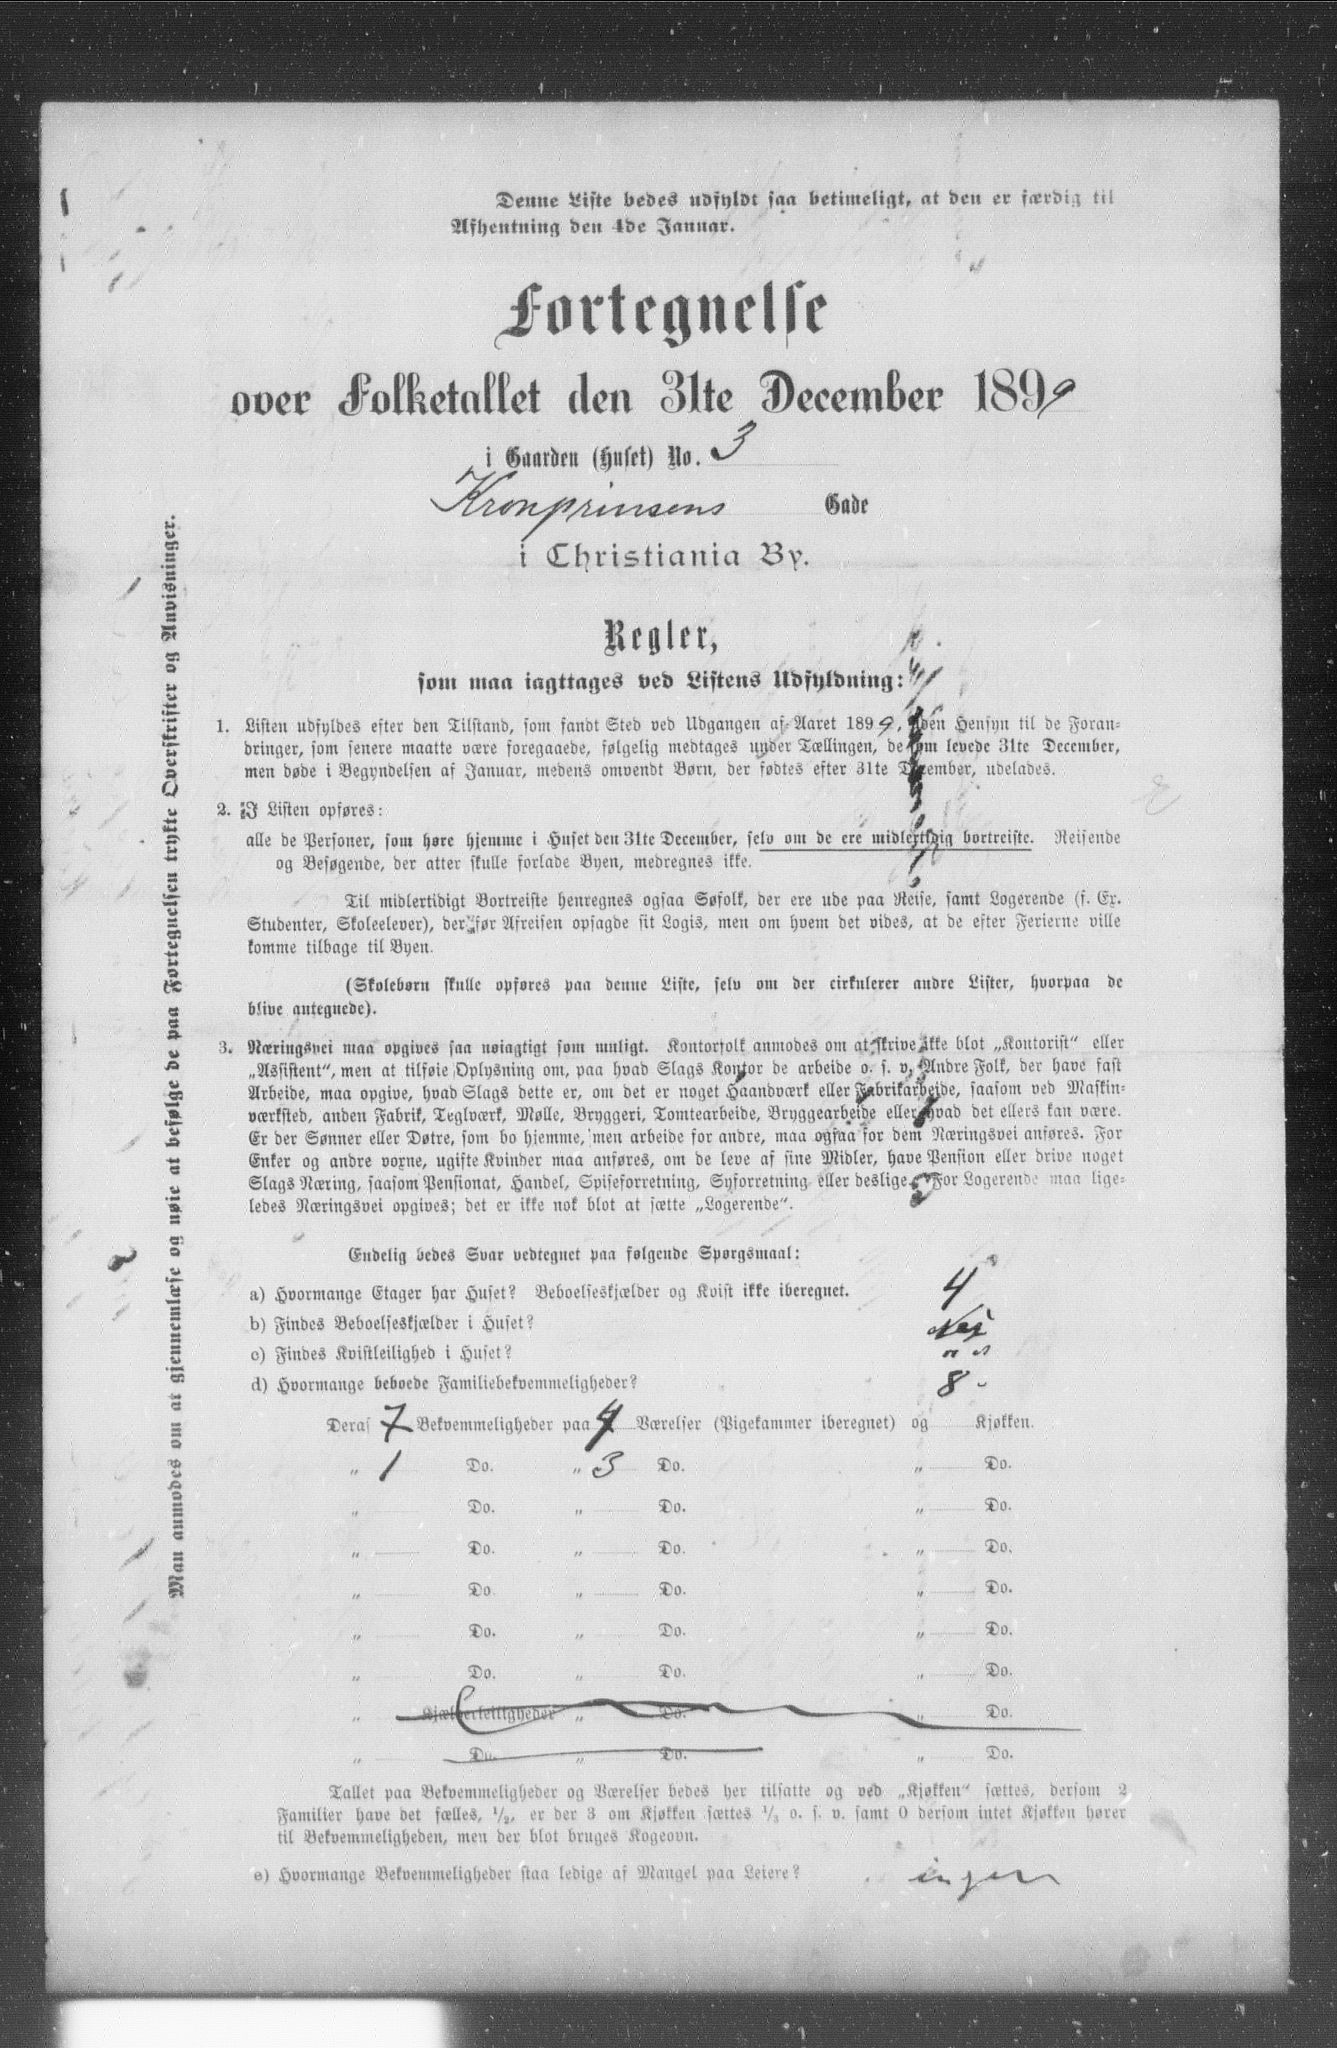 Denne Liste bedes udfyldt saa betimeligt, at den er færdig til
Afhentning den 4de Januar.
Fortegnelse
over Folketallet den 31te December 1899
i Gaarden (Huset) No. 3
Kronprinsens Gade
i Christiania By.
Regler,
som maa iagttages ved Listens Udfyldning:
1. Listen udfyldes efter den Tilstand, som fandt Sted ved Udgangen af Aaret 1899, uden Hensyn til de Foran-
dringer, som senere maatte være foregaaede, følgelig medtages under Tællingen, de som levede 31te December,
men døde i Begyndelsen af Januar, medens omvendt Børn, der fødtes efter 31te December, udelades.
2. I Listen opføres:
alle de Personer, som høre hjemme i Huset den 31te December, selv om de ere midlertidig bortreiste. Reisende
og Besøgende, der atter skulle forlade Byen, medregnes ikke.
Til midlertidigt Bortreiste henregnes ogsaa Søfolk, der ere ude paa Reise, samt Logerende (f. Ex.
Studenter, Skoleelever), der før Afreisen opsagde sit Logis, men om hvem det vides, at de efter Ferierne ville
komme tilbage til Byen.
(Skolebørn skulle opføres paa denne Liste, selv om der cirkulerer andre Lister, hvorpaa de
blive antegnede).
3. Næringsvei maa opgives saa nøiagtigt som muligt. Kontorfolk anmodes om at skrive ikke blot „Kontorist“ eller
„Assistent“, men at tilføie Oplysning om, paa hvad Slags Kontor de arbeide o. s. v. Andre Folk, der have fast
Arbeide, maa opgive, hvad Slags dette er, om det er noget Haandværk eller Fabrikarbeide, saasom ved Maskin-
værksted, anden Fabrik, Teglværk, Mølle, Bryggeri, Tomtearbeide, Bryggearbeide eller hvad det ellers kan være.
Er der Sønner eller Døtre, som bo hjemme, men arbeide for andre, maa ogsaa for dem Næringsvei anføres. For
Enker og andre voxne, ugifte Kvinder maa anføres, om de leve af sine Midler, have Pension eller drive noget
Slags Næring, saasom Pensionat, Handel, Spiseforretning, Syforretning eller deslige. For Logerende maa lige-
ledes Næringsvei opgives; det er ikke nok blot at sætte „Logerende“.
Endelig bedes Svar vedtegnet paa følgende Spørgsmaal:
a) Hvormange Etager har Huset? Beboelseskjælder og Kvist ikke iberegnet. 4
b) Findes Beboelseskjælder i Huset? Nei
c) Findes Kvistleilighed i Huset? " "
d) Hvormange beboede Familiebekvemmeligheder? 8
Deraf 7 Bekvemmeligheder paa 4 Værelser (Pigekammer iberegnet) og Kjøkken.
„ 1 Do. „ 3 Do. „ Do.
„ Do. „ Do. „ Do.
„ Do. „ Do. „ Do.
„ Do. „ Do. „ Do.
„ Do. „ Do. „ Do.
„ Do. „ Do. „ Do.
„ Kjælderleiligheder „ Do. „ Do.
„ Do. „ Do. „ Do.
Tallet paa Bekvemmeligheder og Værelser bedes her tilsatte og ved „Kjøkken“ sættes, dersom 2
Familier have det fælles, 1/2, er der 3 om Kjøkken sættes 1/3 o. s. v. samt 0 dersom intet Kjøkken hører
til Bekvemmeligheden, men der blot bruges Kogeovn.
e) Hvormange Bekvemmeligheder staa ledige af Mangel paa Leiere? ingen
Man anmodes om at gjennemlæse og nøie at befølge de paa Fortegnelsen trykte Overskrifter og Anvisninger.